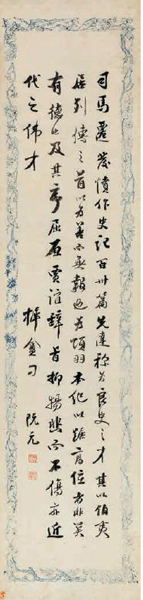 司馬遷發憤作史記百卅篇先達稱為良史之才其以伯夷
居列傳之首以為善而無報也為項羽本紀以踞高位者非关
有德也及其序屈原賈誼辭旨抑揚悲而不傷亦近
代之偉才
阮元